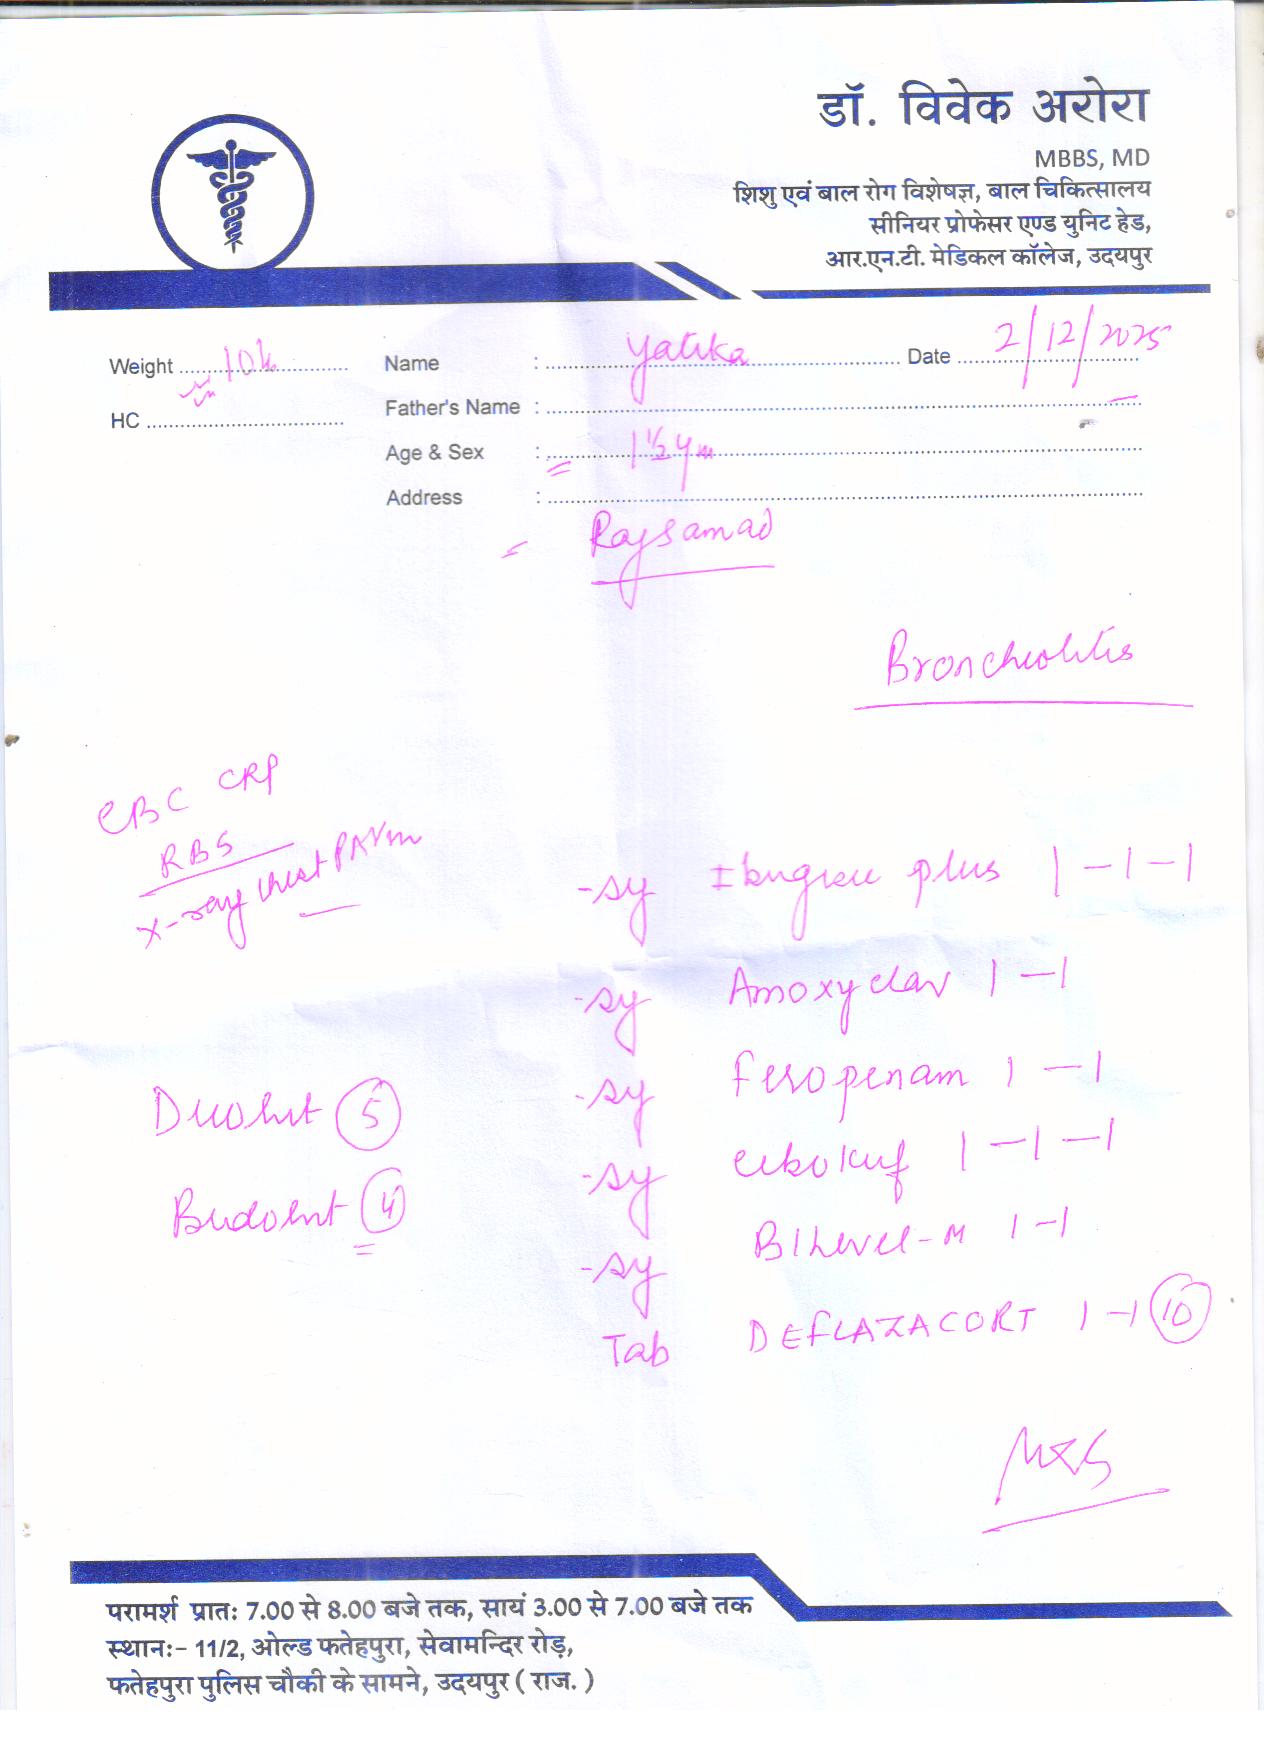 डॉ. विवेक अरोरा
MBBS, MD
शिशु एवं बाल रोग विशेषज्ञ, बाल चिकित्सालय
सीनियर प्रोफेसर एण्ड युनिट हेड,
आर.एन.टी. मेडिकल कॉलेज, उदयपुर
Weight 10k Name : Yatika Date 2/12/2025
HC Father's Name :
Age & Sex : 1 1/2 y
Address :
Rajsamad
Bronchiolitis
CBC CRP
RBS
X-ray chest PA
-sy plus 1-1-1
-sy Amoxyclav 1-1
-sy feropenam 1-1
Duolnt 5
-sy 1-1-1
Budolnt 4
-sy -M 1-1
Tab DEFLAZACORT 1-1 10
परामर्श प्रातः 7.00 से 8.00 बजे तक, सायं 3.00 से 7.00 बजे तक
स्थानः- 11/2, ओल्ड फतेहपुरा, सेवामन्दिर रोड़,
फतेहपुरा पुलिस चौकी के सामने, उदयपुर ( राज. )